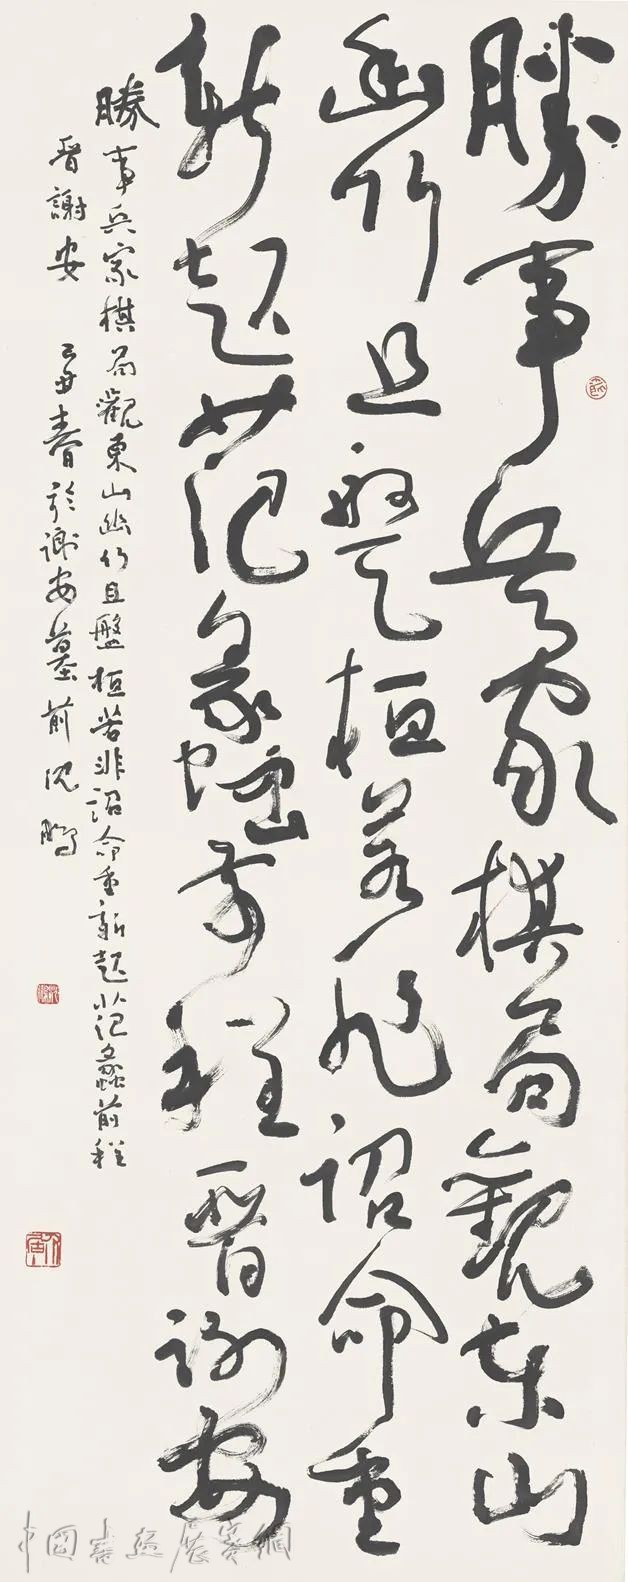 勝事兵家棋局觀東山
幽竹且盤桓若非詔命重
新起少范蠡前程晉謝安
勝事兵家棋局觀東山幽竹且盤桓若非詔命重新起少范蠡前程
晉謝安 丑春於謝安墓前沈鵬
中國書畫展賽網